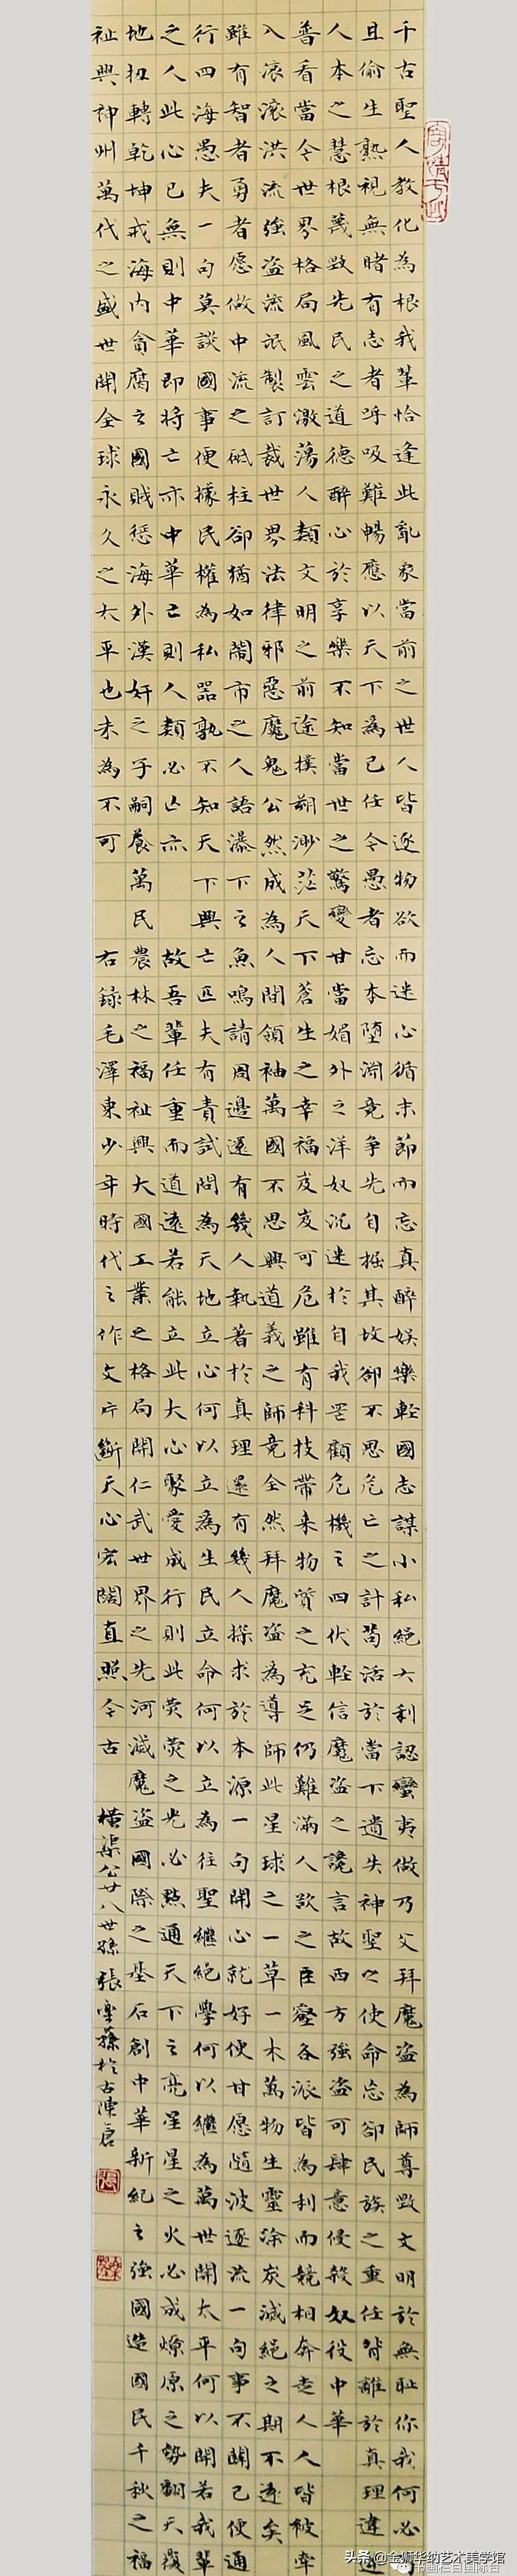 千古聖人教化為根我輩恰逢此亂象當前之世人皆逐物欲而迷心循末節而忘真醉娛樂輕國志謀小私絕大利認蠻夷做乃父拜魔盗為師尊毀文明於無恥你我何必
且偷生熟視無睹有志者呼吸難暢應以天下為己任令愚者忘本墮淵竟争先自掘其坟卻不思危亡之計苟活於當下遺失神聖之使命忘卻民族之重任背離於真理違
人本之慧根蔑毀先民之道德醉心於享樂不知當世之驚變甘當媚外之洋奴沉迷於自我罔顧危機之四伏輕信魔盗之讒言故西方強盗可肆意侵殺奴役中華
普看當今世界格局風雲激蕩人類文明之前途撲朔渺茫天下蒼生之幸福岌岌可危雖有科技帶来物質之充足仍難滿人欲之巨壑各派皆為利而競相奔走人人皆被牽
入滾滾洪流強盗流氓製訂裁世界法律邪惡魔鬼公然成為人間領袖萬國不思興道義之師竟全然拜魔盗為導師此星球之一草一木萬物生靈涂炭滅絕之期不遠矣
雖有智者勇者愿做中流之砥柱卻猶如鬧市之人語瀑下之魚鳴請周邊還有幾人執著於真理還有幾人探求於本源一句開心就好便甘愿隨波逐流一句事不關己便通
行四海愚夫一句莫談國事便據民權為私器孰不知天下興亡匹夫有責試問為天地立心何以立為生民立命何以立為往聖繼絕學何以繼為萬世開太平何以開若我輩
之人此心已無則中華即将亡亦中華亡則人類必亡亦 故吾輩任重而道遠若能立此大心聚愛成行則此荧荧之光必點通天下之亮星星之火必成燎原之勢翻天覆
地扭轉乾坤戒海內貪腐之國賊惩海外漢奸之子嗣養萬民農林之福祉興大國工業之格局開仁武世界之先河滅魔盗國際之基石創中華新紀之強國造國民千秋之福
祉興神州萬代之盛世開全球永久之太平也未為不可 右録毛澤東少年時代之作文片斷天心宏闊直照今古 橫渠公廿八世孫張雲蓀於古陳倉
头条@金狮华纳艺术美学馆
书画栏目国际台